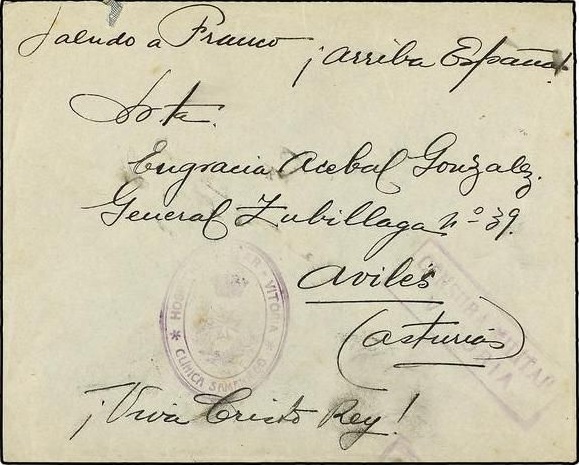 Saludo a Franco ¡Arriba España!
Srta.
Engracia Acebal Gonzalez.
General Zubillaga nº 39.
Avilés
(Asturias)
HOSPITAL MILITAR - VITORIA
* CLINICA *
CENSURA MILITAR
VITORIA
¡Viva Cristo Rey!